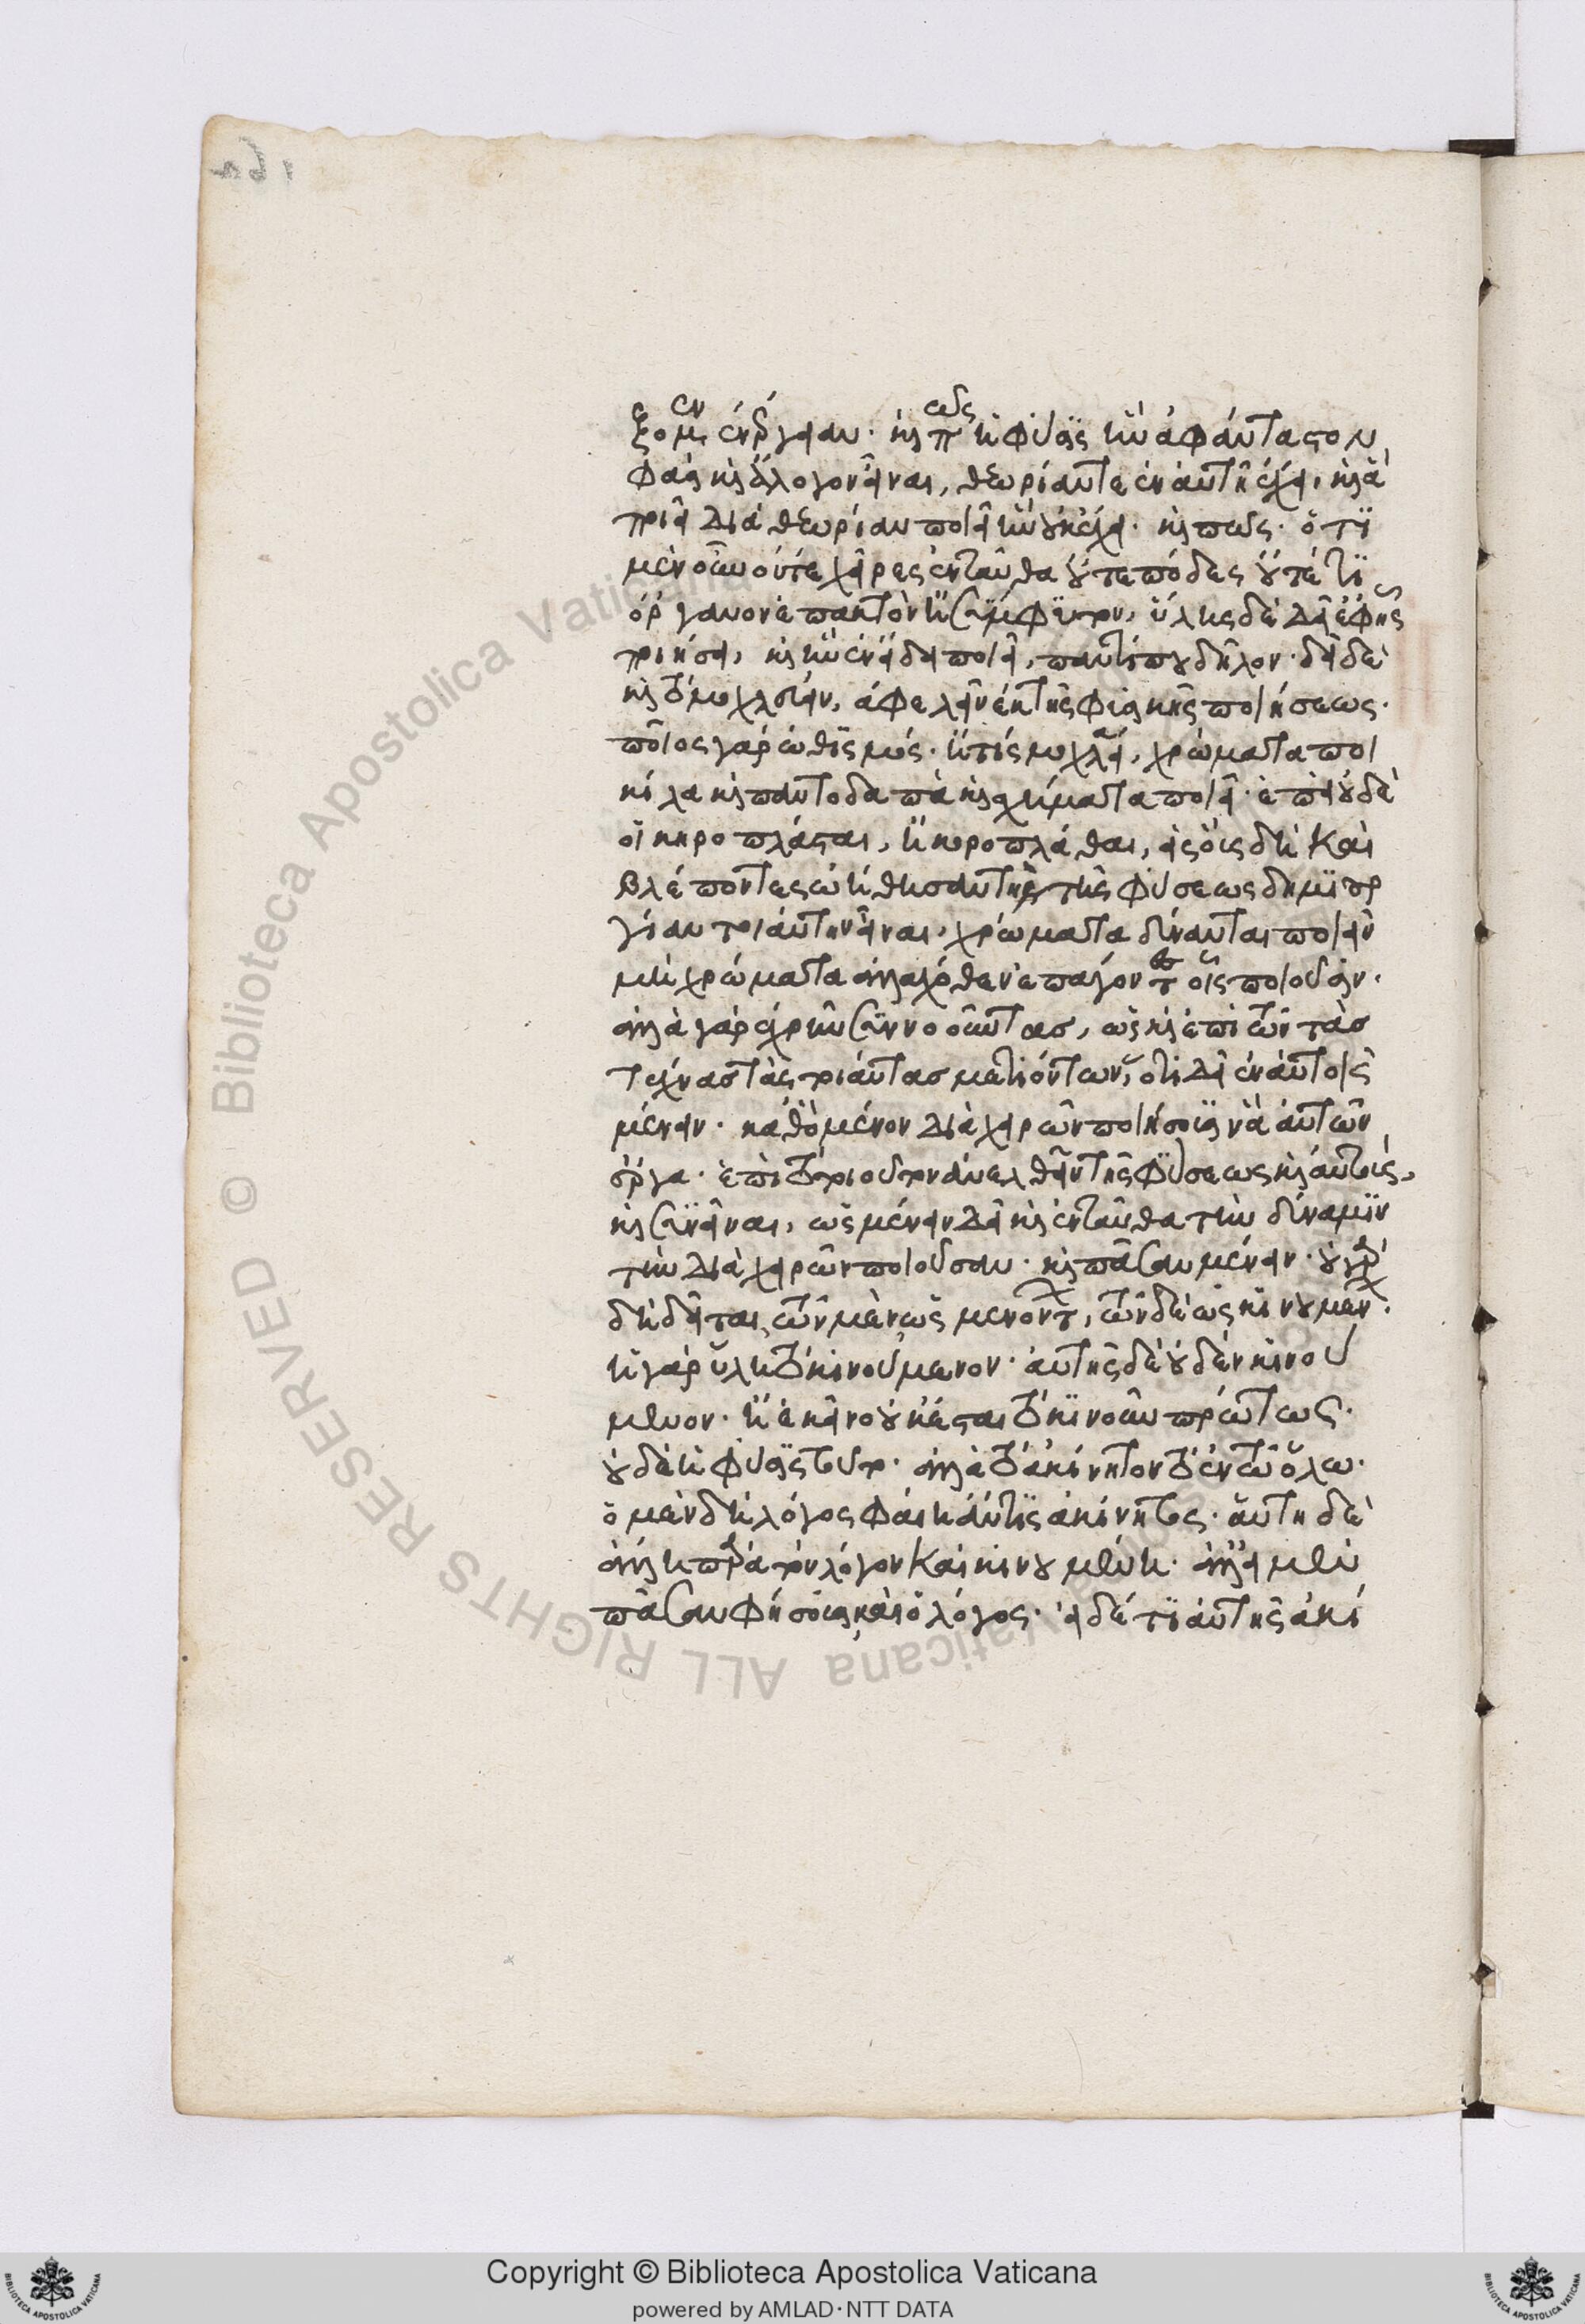 ξομεν ἐνέργειαν. καὶ πῶς ἡ φύσις ἣν ἀφάνταστον
φασὶ καὶ ἄλογον εἶναι, θεωρίαν τε ἐν αὐτῆ ἔχει, καὶ ἃ
ποιεῖ διὰ θεωρίαν ποιεῖ ἣν οὐκ ἔχει. καὶ πῶς. ὅτι
μὲν οὖν οὔτε χεῖρες ἐνταῦθα οὔτε πόδες οὔτέ τι
ὄργανον ἐπακτὸν ἢ σύμφυτον, ὕλης δὲ δεῖ ἐφ' ἧς
ποιήσει, καὶ ἣν ἐν εἴδει ποιεῖ, παντί που δῆλον. δεῖ δὲ
καὶ τὸ μοχλεύειν, ἀφελεῖν ἐκ τῆς φυσικῆς ποιήσεως.
ποῖος γὰρ ὠθισμός. ἢ τίς μοχλεία, χρώματα ποι
κίλα καὶ παντοδαπὰ καὶ σχήματα ποιεῖ. ἐπεὶ οὐδὲ
οἱ κηροπλάσται, ἢ κοροπλάθαι, εἰς οὓς δὴ καὶ
βλέποντες ὠήθησαν τὴν τῆς φύσεως δημιουρ
γίαν τοιαύτην εἶναι, χρώματα δύνανται ποιεῖν
μὴ χρώματα ἀλλαχόθεν ἐπάγοντες οἷς ποιοῦσιν.
ἀλλὰ γὰρ ἐχρῆν συννοοῦντας, ὡς καὶ ἐπὶ τῶν τὰς
τέχνας τὰς τοιαύτας μετιόντων, ὅτι δεῖ ἐν αὐτοῖς
μένειν. καθ' ὃ μένον διὰ χειρῶν ποιήσουσιν ἃ αὐτῶν
ἔργα. ἐπὶ τὸ τοιοῦτον ἀνελθεῖν τῆς φύσεως καὶ αὐτούς,
καὶ συνεῖναι, ὡς μένειν δεῖ καὶ ἐνταῦθα τὴν δύναμιν
τὴν διὰ χειρῶν ποιοῦσαν. καὶ πᾶσαν μένειν. οὐ γὰρ
δὴ δεῖται τῶν μὲν ὡς μενόντων, τῶν δὲ ὡς κινουμένων.
ἡ γὰρ ὕλη τὸ κινούμενον. αὐτῆς δὲ οὐδὲν κινού
μενον. ἢ ἐκεῖνο οὐκ ἔσται τὸ κινοῦν πρώτως.
οὐδὲ ἡ φύσις τοῦτο. ἀλλὰ τὸ ἀκίνητον τὸ ἐν τῶ ὅλω.
ὁ μὲν δὴ λόγος φαίη ἄν τις ἀκίνητος. αὕτη δὲ
ἄλλη παρὰ τὸν λόγον καὶ κινουμένη. ἀλλ' εἰ μὲν
πᾶσαν φήσουσι καὶ ὁ λόγος. εἰ δέ τι αὐτῆς ἀκί